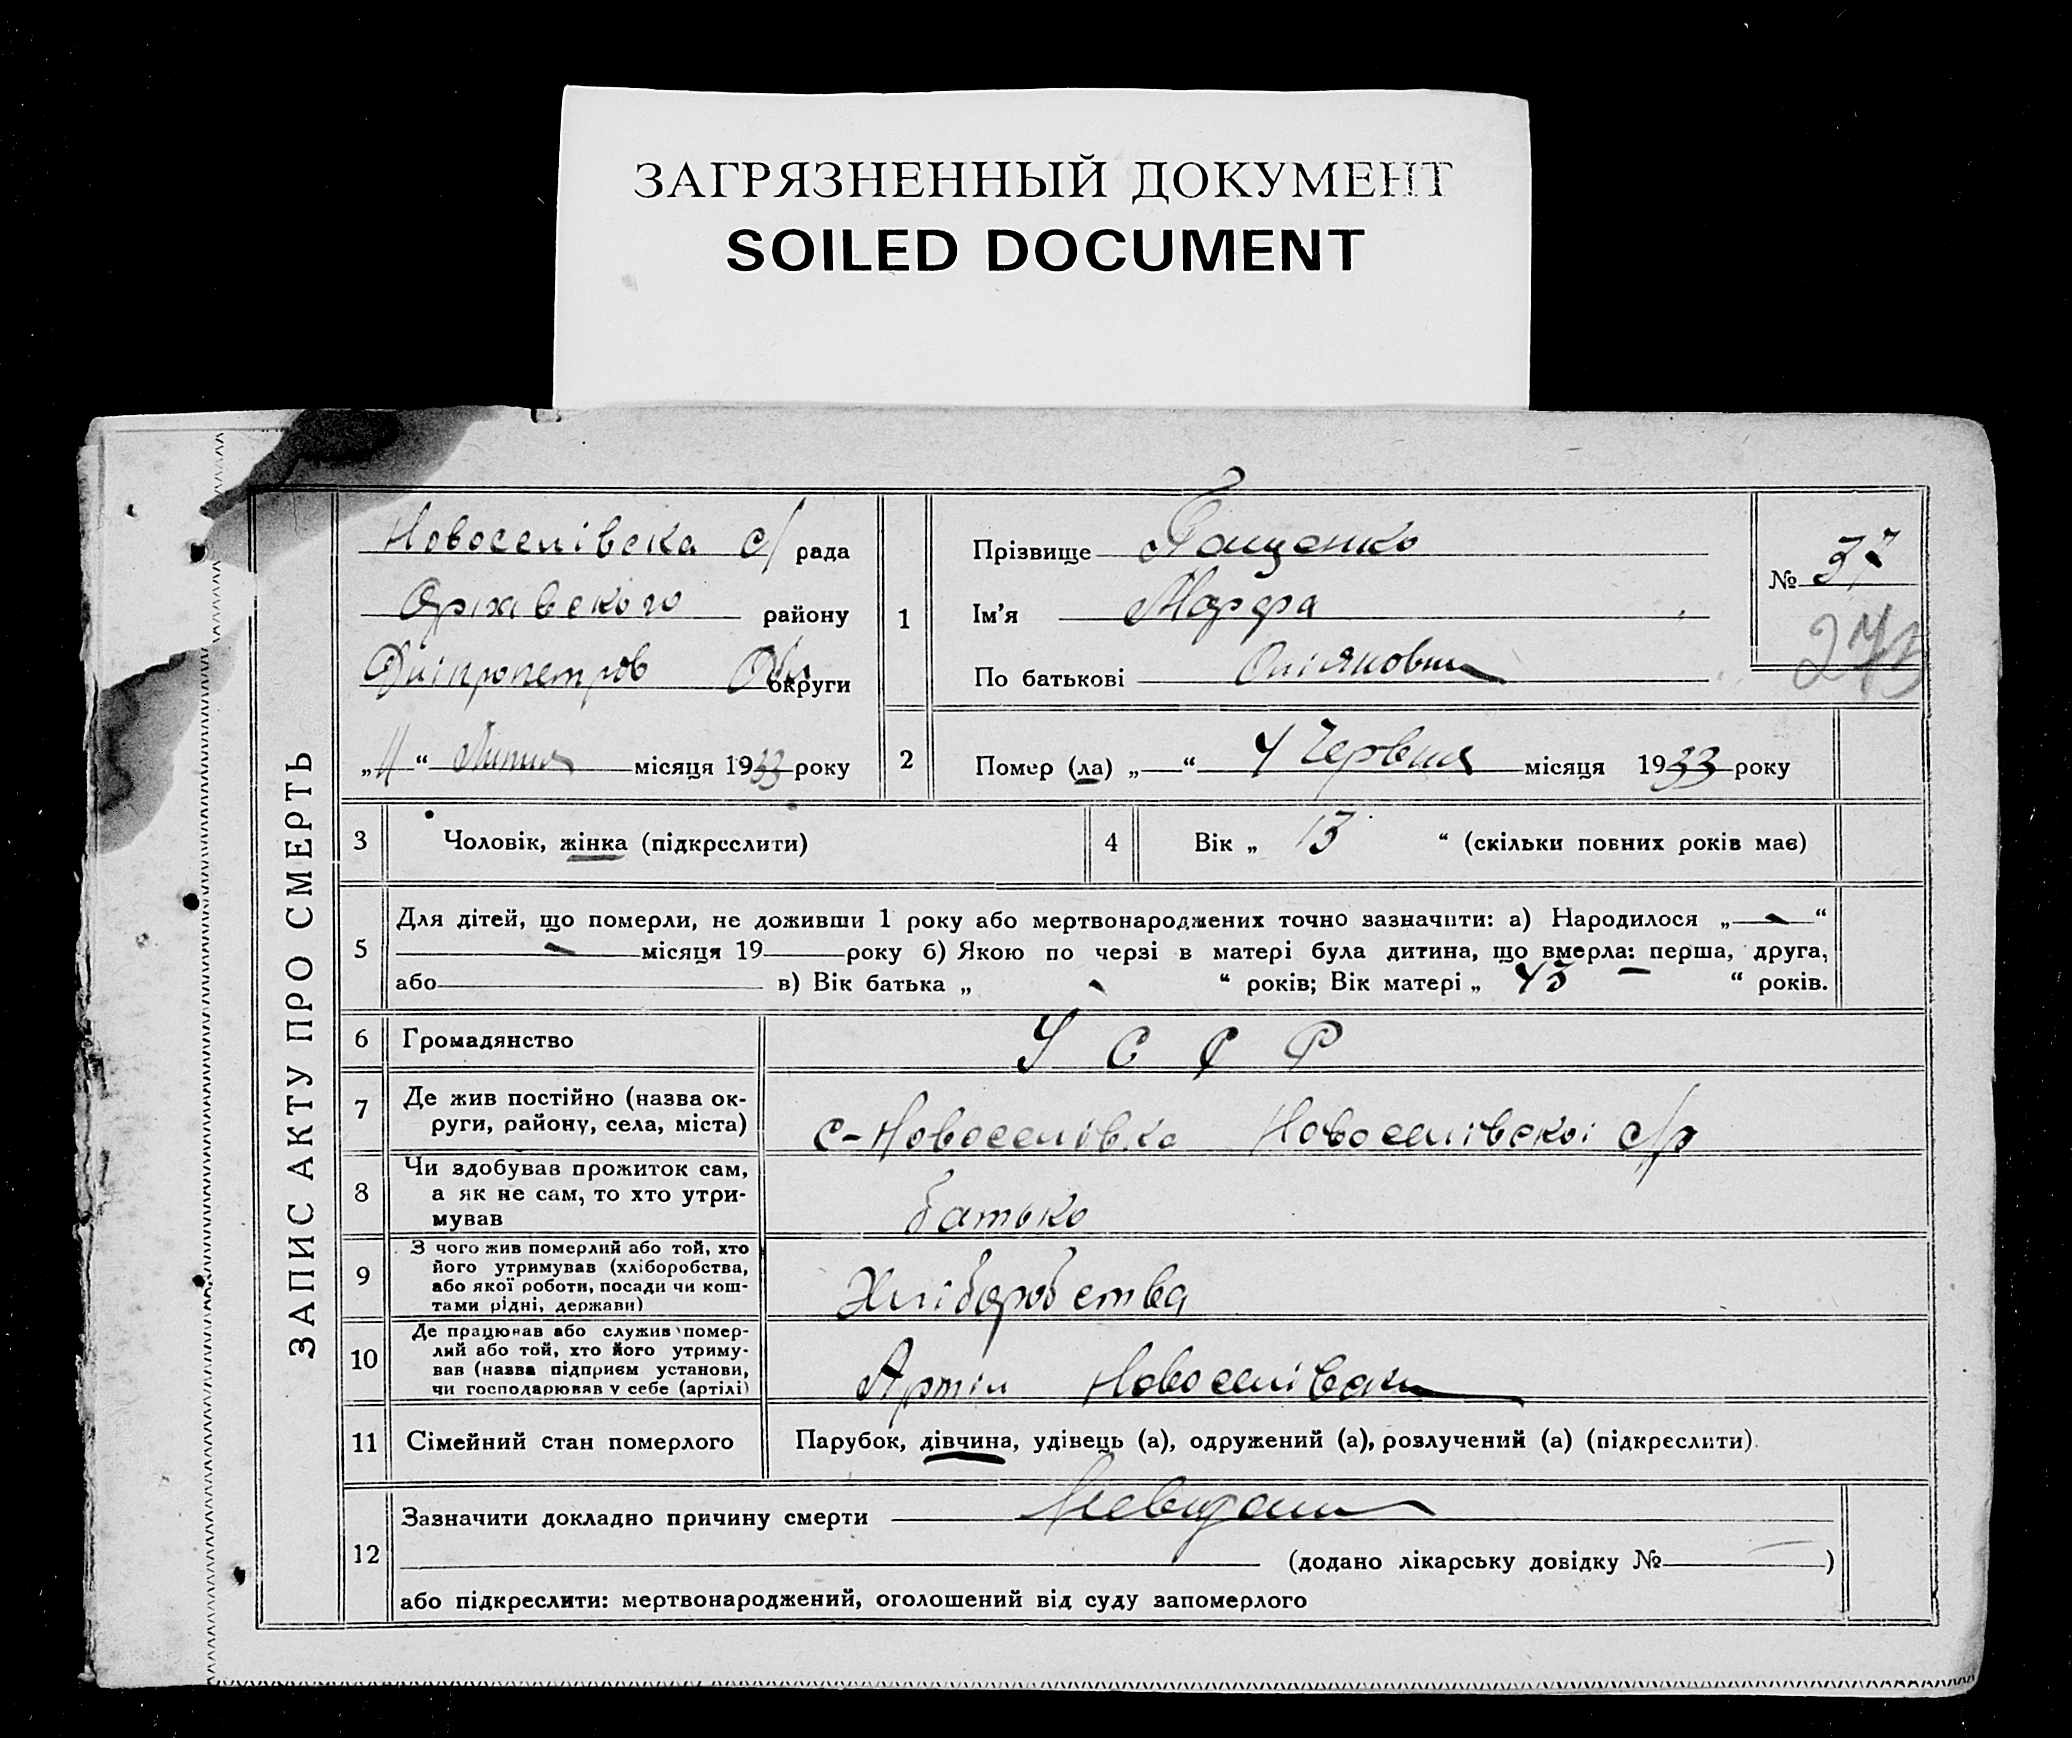 ЗАГРЯЗНЕННЫЙ ДОКУМЕНТ
SOILED DOCUMENT
ЗАПИС АКТУ ПРО СМЕРТЬ
Новоселівска с/ рада
Оріхівского району
Дніпропетров Обл округи
„11“ Липня місяця 1933 року
1
Прізвище Пащенко
Ім’я Марфа
По батькові
№ 37
2 Помер (ла) „ “ 4 Червня місяця 1933 року
3 Чоловік, жінка (підкреслити)
4 Вік „ 13 “ (скільки повних років має)
5 Для дітей, що померли, не доживши 1 року або мертвонароджених точно зазначити: а) Народилося „ “
місяця 19 року б) Якою по черзі в матері була дитина, що вмерла: перша, друга,
або в) Вік батька „ “ років; Вік матері „ 43 “ років.
6 Громадянство У С Р Р
7 Де жив постійно (назва ок-
руги, району, села, міста) с-Новоселівка Новоселівскоі с/р
8 Чи здобував прожиток сам,
а як не сам, то хто утри-
мував батько
9 З чого жив померлий або той, хто
його утримував (хліборобства,
або якої роботи, посади чи кош-
тами рідні, держави) Хліборобства
10 Де працював або служив помер-
лий або той, хто його утриму-
вав (назва підприєм установи,
чи господарював у себе (артілі) Артіл Новоселівки
11 Сімейний стан померлого Парубок, дівчина, удівець (а), одружений (а), розлучений (а) (підкреслити).
12 Зазначити докладно причину смерти
(додано лікарську довідку № )
або підкреслити: мертвонароджений, оголошений від суду запомерлого